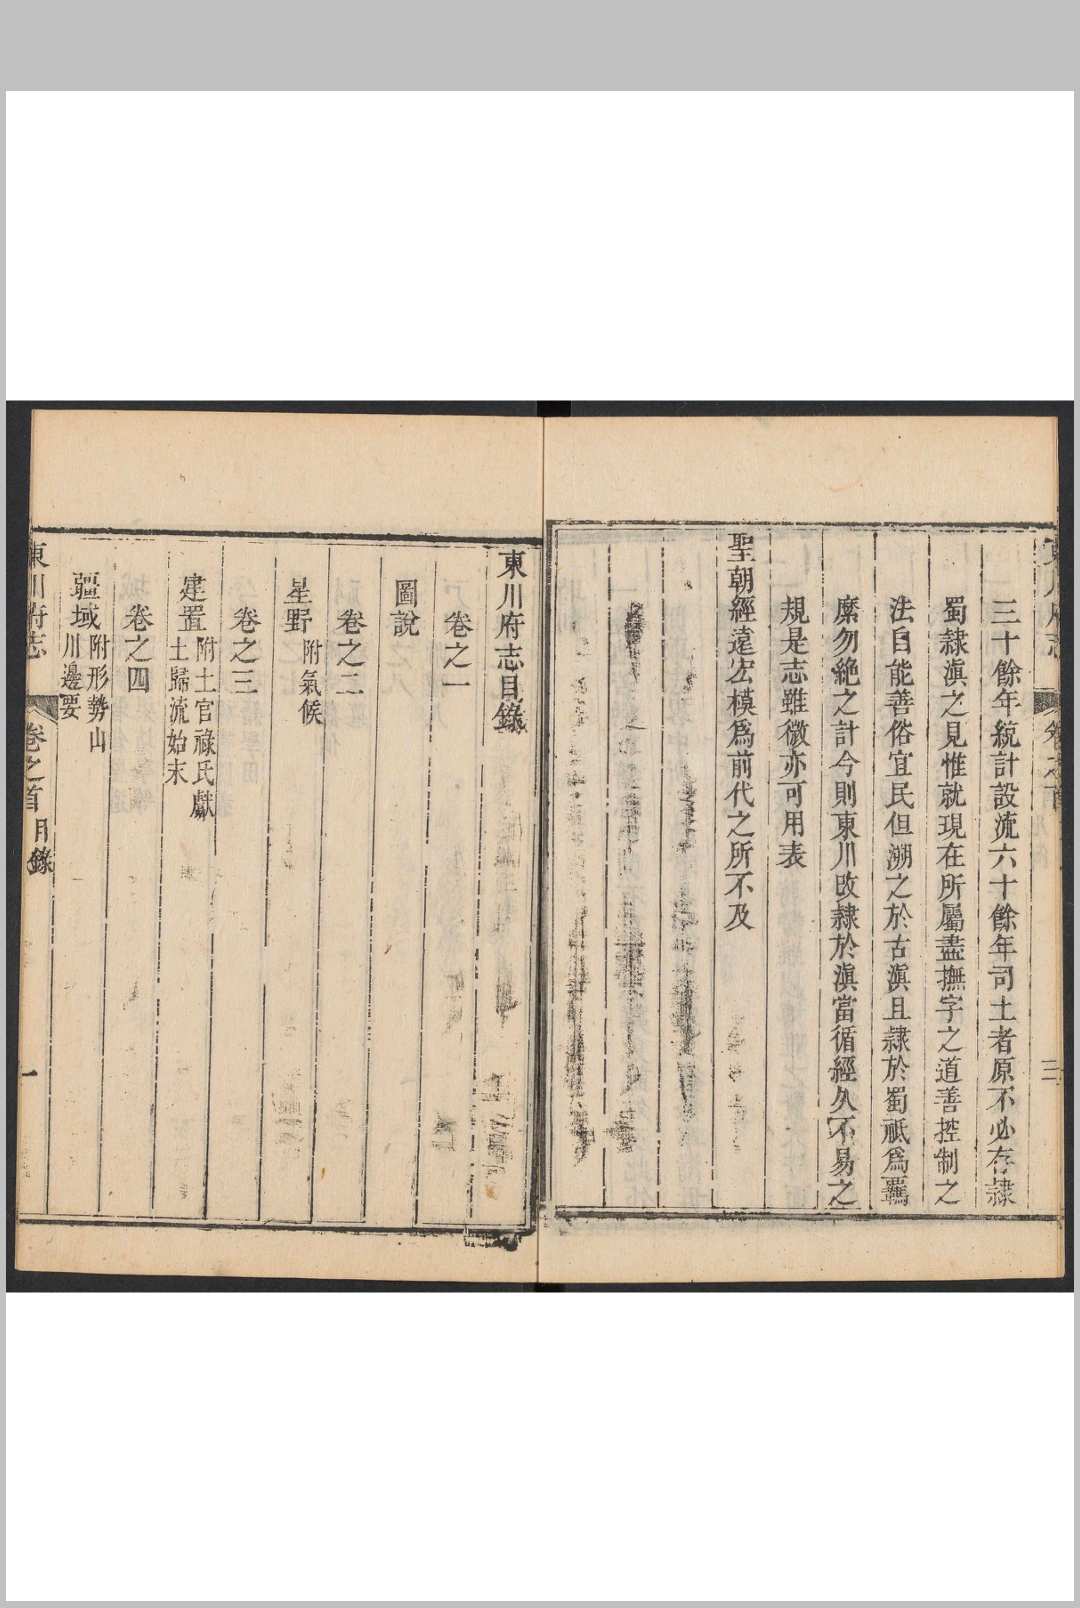 三十餘年統計設流六十餘年司土者原不必存隸
蜀隸滇之見惟就現在所屬盡撫字之道善控制之
法自能善俗宜民但溯之於古滇且隸於蜀祇爲羈
縻勿絶之計今則東川改隸於滇當循經久不易之
規是志雖微亦可用表
聖朝經遠宏模爲前代之所不及
三
東川府志目錄
卷之一
圖說
卷之二
星野 附氣候
卷之三
建置 附土官祿氏獻
土歸流始末
卷之四
疆域 附形勢山
川邊要
東川府志 卷之首 目錄 一